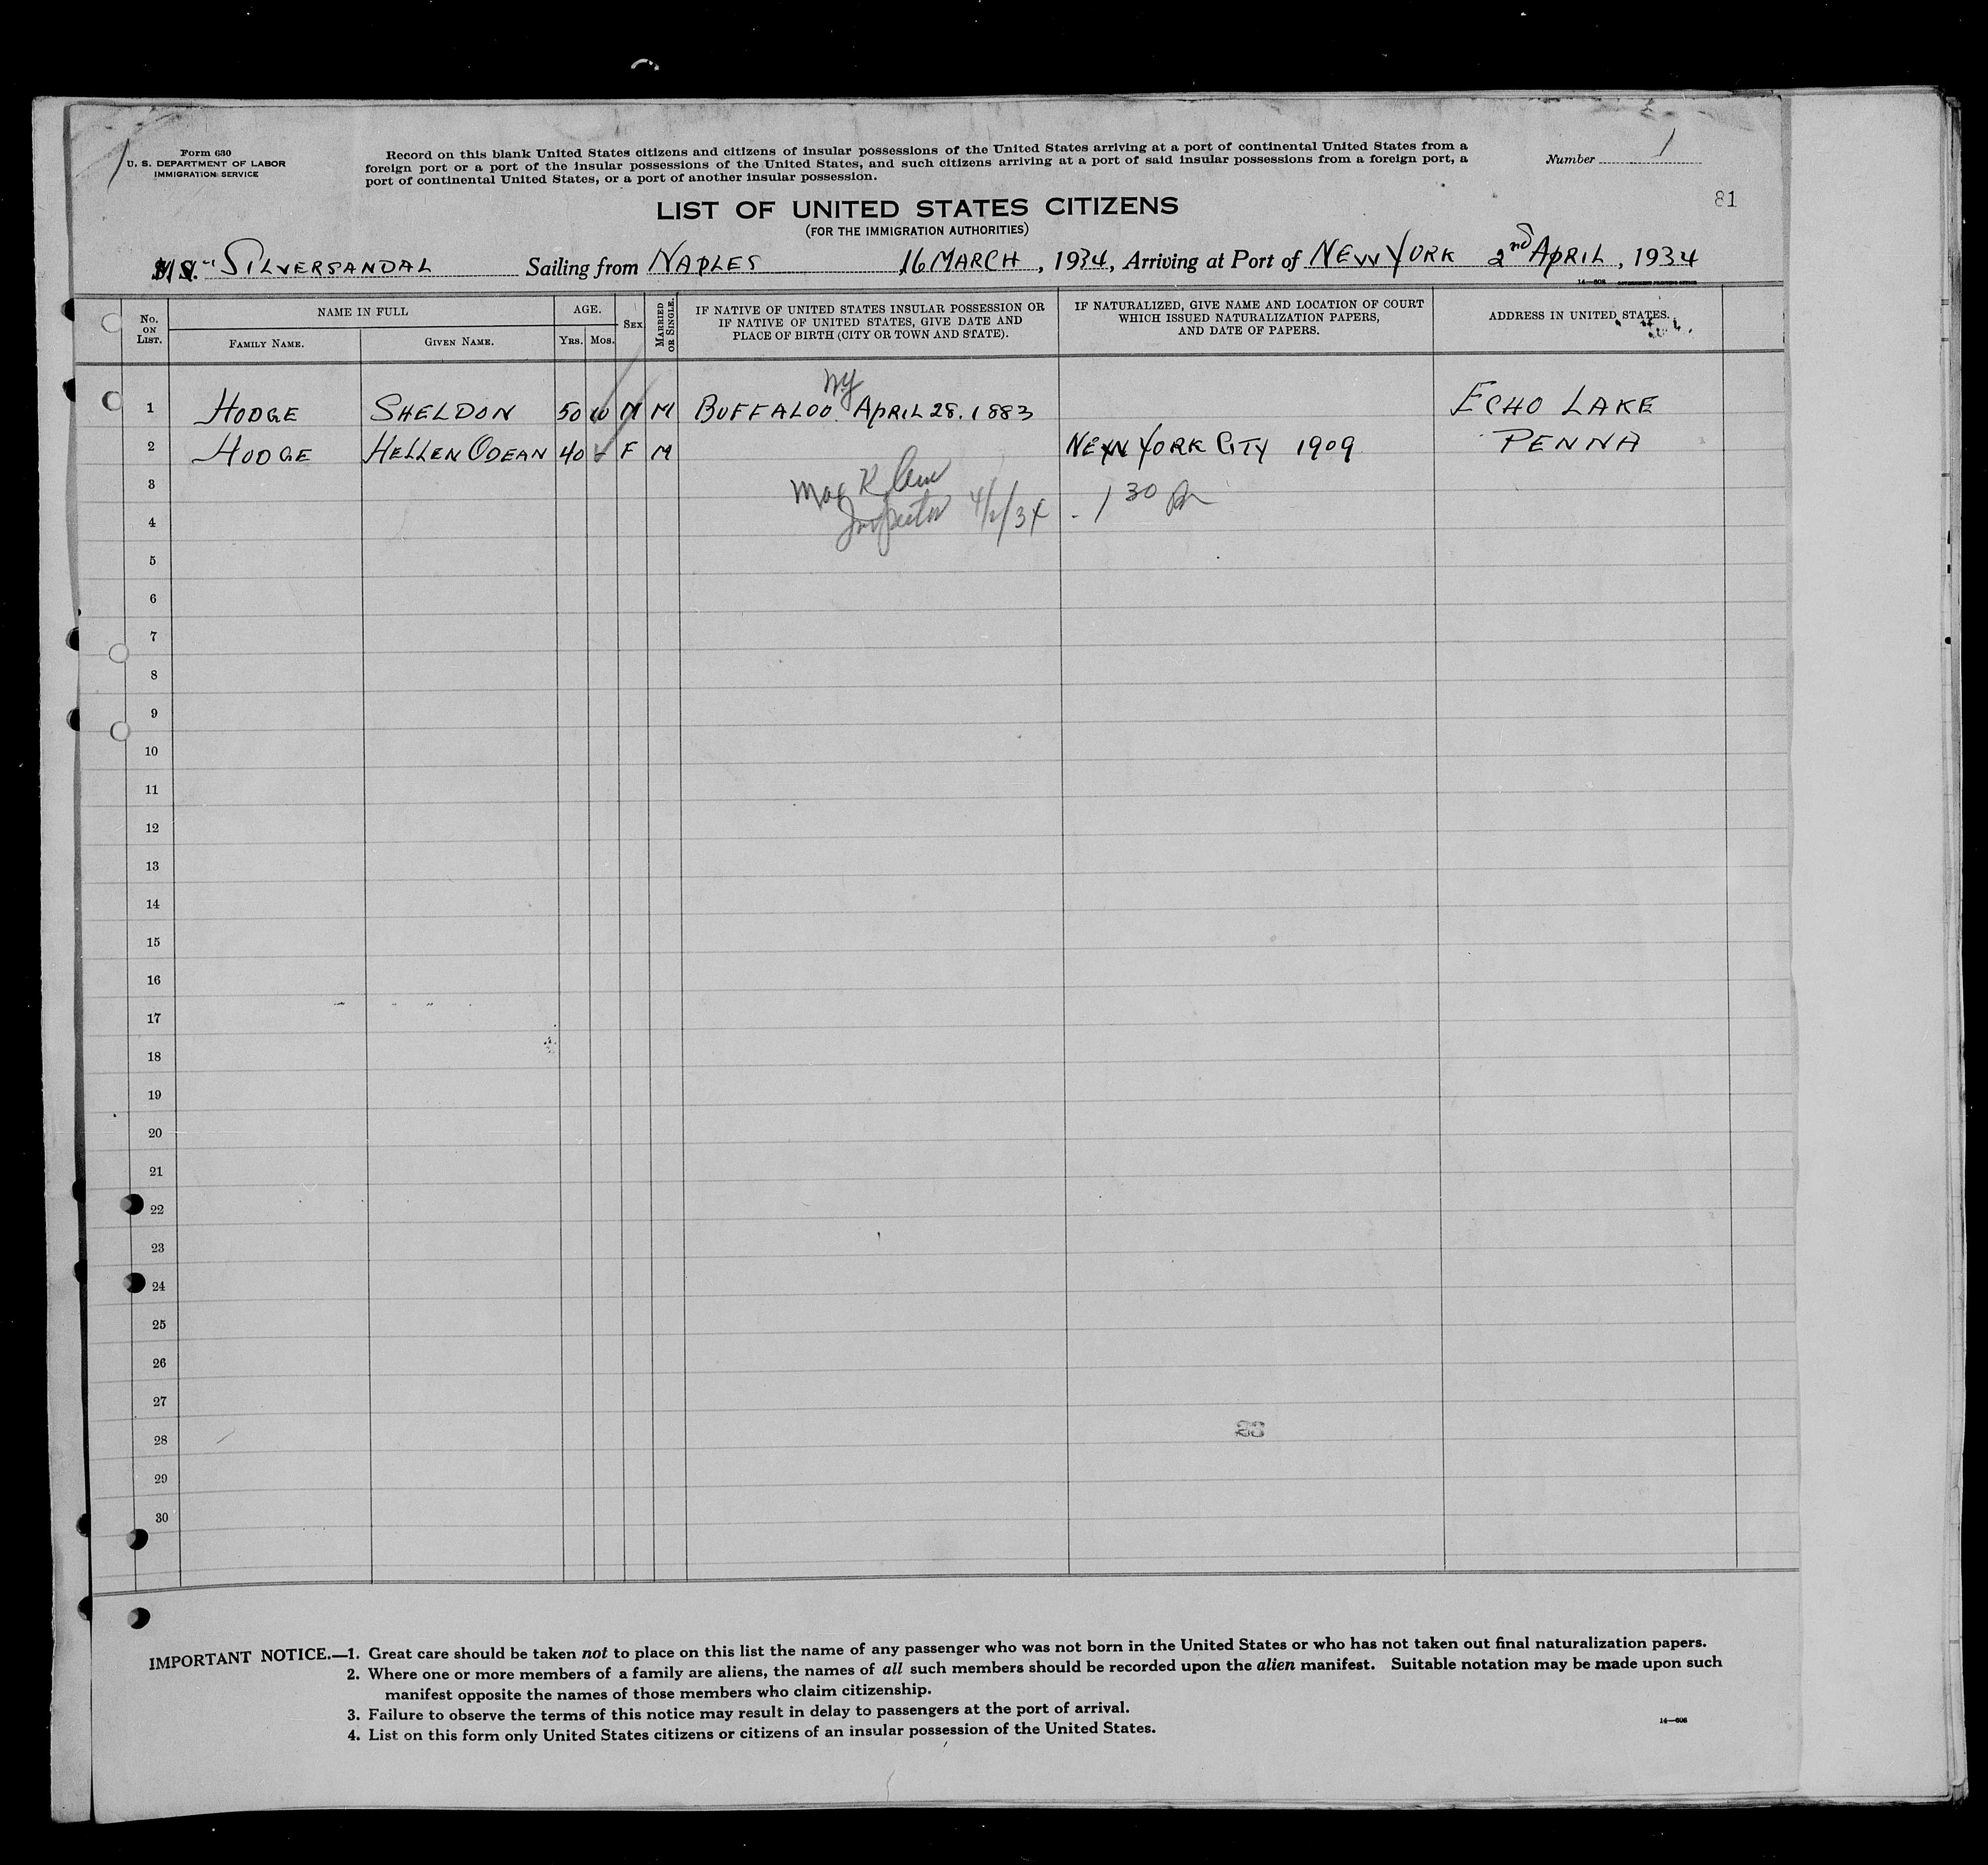 Form 630
U. S. DEPARTMENT OF LABOR
IMMIGRATION SERVICE
Record on this blank United States citizens and citizens of insular possessions of the United States arriving at a port of continental United States from a
foreign port or a port of the insular possessions of the United States, and such citizens arriving at a port of said insular possessions from a foreign port, a
port of continental United States, or a port of another insular possession.
Number 1
81
LIST OF UNITED STATES CITIZENS
(FOR THE IMMIGRATION AUTHORITIES)
SILVERSANDAL Sailing from NAPLES 16 MARCH, 1934, Arriving at Port of NEW YORK 2nd APRIL, 1934
14—608 GOVERNMENT PRINTING OFFICE
No. ON LIST. NAME IN FULL FAMILY NAME. GIVEN NAME. AGE. YRS. MOS. SEX MARRIED OR SINGLE. IF NATIVE OF UNITED STATES INSULAR POSSESSION OR IF NATIVE OF UNITED STATES, GIVE DATE AND PLACE OF BIRTH (CITY OR TOWN AND STATE). IF NATURALIZED, GIVE NAME AND LOCATION OF COURT WHICH ISSUED NATURALIZATION PAPERS, AND DATE OF PAPERS. ADDRESS IN UNITED STATES.
NY
1 HODGE SHELDON 50 M M BUFFALOO. APRIL 28. 1883 ECHO LAKE
2 HODGE HELLEN ODEAN 40 F M NEW YORK CITY 1909 PENNA
3
4 Inspector 4/2/34 - 1 30 pm
5
6
7
8
9
10
11
12
13
14
15
16
17
18
19
20
21
22
23
24
25
26
27
28
29
30
IMPORTANT NOTICE.—1. Great care should be taken not to place on this list the name of any passenger who was not born in the United States or who has not taken out final naturalization papers.
2. Where one or more members of a family are aliens, the names of all such members should be recorded upon the alien manifest. Suitable notation may be made upon such
manifest opposite the names of those members who claim citizenship.
3. Failure to observe the terms of this notice may result in delay to passengers at the port of arrival.
4. List on this form only United States citizens or citizens of an insular possession of the United States.
14—608